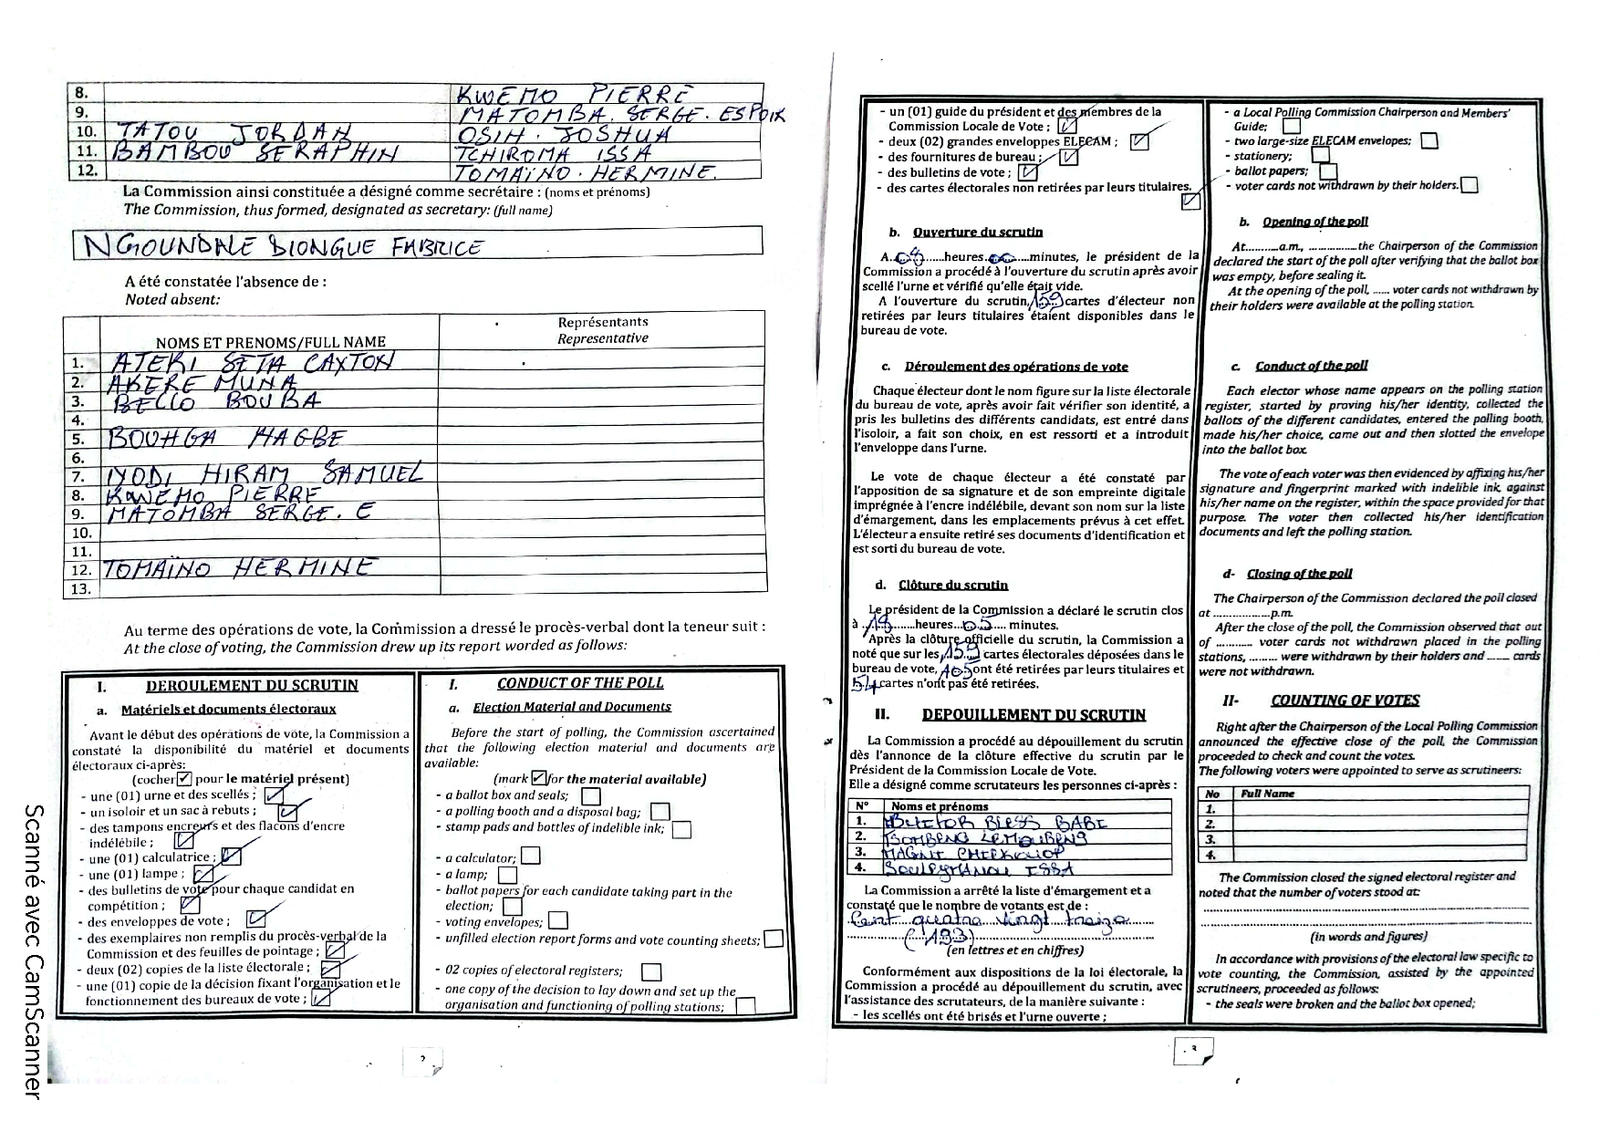 8. KWEMO PIERRE
9. MATOMBA. SERGE. ESPOIR
10. TATOU JORDAN OSIH. JOSHUA
11. BAMBOU SERAPHIN TCHIROMA ISSA
12. TOMAÏNO. HERMINE.
La Commission ainsi constituée a désigné comme secrétaire : (noms et prénoms)
The Commission, thus formed, designated as secretary: (full name)
NGOUNDALE DIONGUE FABRICE
A été constatée l'absence de :
Noted absent:
NOMS ET PRENOMS/FULL NAME
Représentants
Representative
1. ATEKI SETA CAXTON
2. AKERE MUNA
3. BELLO BOUBA
4.
5. BOUHGA HAGBE
6.
7. IYODI HIRAM SAMUEL
8. KWEMO PIERRE
9. MATOMBA SERGE. E
10.
11.
12. TOMAÏNO HERMINE
13.
Au terme des opérations de vote, la Commission a dressé le procès-verbal dont la teneur suit :
At the close of voting, the Commission drew up its report worded as follows:
I. DEROULEMENT DU SCRUTIN
a. Matériels et documents électoraux
Avant le début des opérations de vote, la Commission a
constaté la disponibilité du matériel et documents
électoraux ci-après:
(cocher ✓ pour le matériel présent)
- une (01) urne et des scellés ;
- un isoloir et un sac à rebuts ;
- des tampons encreurs et des flacons d'encre
indélébile ;
- une (01) calculatrice ;
- une (01) lampe ;
- des bulletins de vote pour chaque candidat en
compétition ;
- des enveloppes de vote ;
- des exemplaires non remplis du procès-verbal de la
Commission et des feuilles de pointage ;
- deux (02) copies de la liste électorale ;
- une (01) copie de la décision fixant l'organisation et le
fonctionnement des bureaux de vote ;
I. CONDUCT OF THE POLL
a. Election Material and Documents
Before the start of polling, the Commission ascertained
that the following election material and documents are
available:
(mark ✓ for the material available)
- a ballot box and seals;
- a polling booth and a disposal bag;
- stamp pads and bottles of indelible ink;
- a calculator;
- a lamp;
- ballot papers for each candidate taking part in the
election;
- voting envelopes;
- unfilled election report forms and vote counting sheets;
- 02 copies of electoral registers;
- one copy of the decision to lay down and set up the
organisation and functioning of polling stations;
2
- un (01) guide du président et des membres de la
Commission Locale de Vote ;
- deux (02) grandes enveloppes ELECAM ;
- des fournitures de bureau ;
- des bulletins de vote ;
- des cartes électorales non retirées par leurs titulaires.
b. Ouverture du scrutin
A 08 heures 00 minutes, le président de la
Commission a procédé à l'ouverture du scrutin après avoir
scellé l'urne et vérifié qu'elle était vide.
A l'ouverture du scrutin, 159 cartes d'électeur non
retirées par leurs titulaires étaient disponibles dans le
bureau de vote.
c. Déroulement des opérations de vote
Chaque électeur dont le nom figure sur la liste électorale
du bureau de vote, après avoir fait vérifier son identité, a
pris les bulletins des différents candidats, est entré dans
l'isoloir, a fait son choix, en est ressorti et a introduit
l'enveloppe dans l'urne.
Le vote de chaque électeur a été constaté par
l'apposition de sa signature et de son empreinte digitale
imprégnée à l'encre indélébile, devant son nom sur la liste
d'émargement, dans les emplacements prévus à cet effet.
L'électeur a ensuite retiré ses documents d'identification et
est sorti du bureau de vote.
d. Clôture du scrutin
Le président de la Commission a déclaré le scrutin clos
à 18 heures 05 minutes.
Après la clôture officielle du scrutin, la Commission a
noté que sur les 159 cartes électorales déposées dans le
bureau de vote, 105 ont été retirées par leurs titulaires et
54 cartes n'ont pas été retirées.
II. DEPOUILLEMENT DU SCRUTIN
La Commission a procédé au dépouillement du scrutin
dès l'annonce de la clôture effective du scrutin par le
Président de la Commission Locale de Vote.
Elle a désigné comme scrutateurs les personnes ci-après :
N° Noms et prénoms
1. BLESS BABE
2.
3.
4. SOULEYMANOU ISSA
La Commission a arrêté la liste d'émargement et a
constaté que le nombre de votants est de :
Cent quatre vingt treize
(193)
(en lettres et en chiffres)
Conformément aux dispositions de la loi électorale, la
Commission a procédé au dépouillement du scrutin, avec
l'assistance des scrutateurs, de la manière suivante :
- les scellés ont été brisés et l'urne ouverte ;
- a Local Polling Commission Chairperson and Members'
Guide;
- two large-size ELECAM envelopes;
- stationery;
- ballot papers;
- voter cards not withdrawn by their holders.
b. Opening of the poll
At..........a.m., ...............the Chairperson of the Commission
declared the start of the poll after verifying that the ballot box
was empty, before sealing it.
At the opening of the poll, ...... voter cards not withdrawn by
their holders were available at the polling station.
c. Conduct of the poll
Each elector whose name appears on the polling station
register, started by proving his/her identity, collected the
ballots of the different candidates, entered the polling booth,
made his/her choice, came out and then slotted the envelope
into the ballot box.
The vote of each voter was then evidenced by affixing his/her
signature and fingerprint marked with indelible ink, against
his/her name on the register, within the space provided for that
purpose. The voter then collected his/her identification
documents and left the polling station.
d- Closing of the poll
The Chairperson of the Commission declared the poll closed
at ...............p.m.
After the close of the poll, the Commission observed that out
of .......... voter cards not withdrawn placed in the polling
stations, ......... were withdrawn by their holders and ....... cards
were not withdrawn.
II- COUNTING OF VOTES
Right after the Chairperson of the Local Polling Commission
announced the effective close of the poll, the Commission
proceeded to check and count the votes.
The following voters were appointed to serve as scrutineers:
No Full Name
1.
2.
3.
4.
The Commission closed the signed electoral register and
noted that the number of voters stood at:
(in words and figures)
In accordance with provisions of the electoral law specific to
vote counting, the Commission, assisted by the appointed
scrutineers, proceeded as follows:
- the seals were broken and the ballot box opened;
3
Scanné avec CamScanner